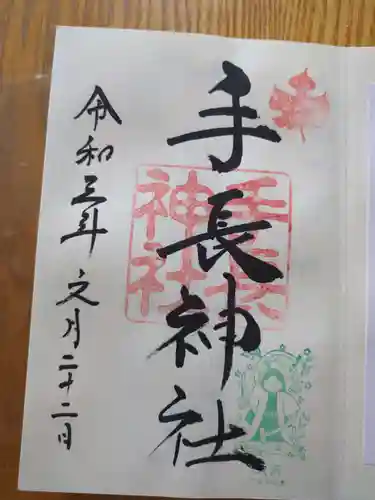 手長神社
手長
神社
令和三年文月二十二日